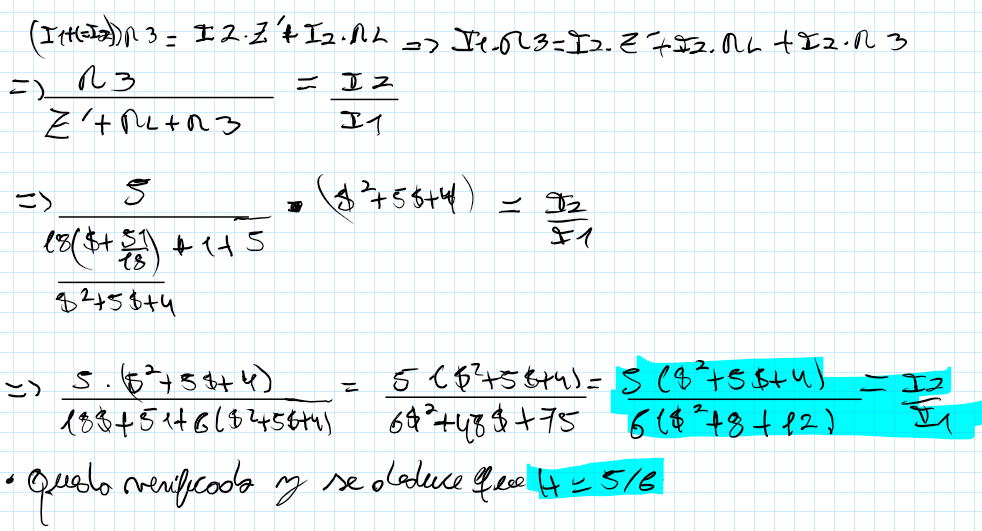 (I1+(-I2))R3 = I2.Z'+I2.RL => I1.R3=I2.Z'+I2.RL+I2.R3
=> R3/(Z'+RL+R3) = I2/I1
=> 5/(18($+51/18)/($²+5$+4) + 1+5) · ($²+5$+4) = I2/I1
=> 5·($²+5$+4)/(18$+51+6($²+5$+4)) = 5($²+5$+4)/(6$²+48$+75) = 5($²+5$+4)/(6($²+8+12)) = I2/I1
• Queda verificado y se deduce que H = 5/6